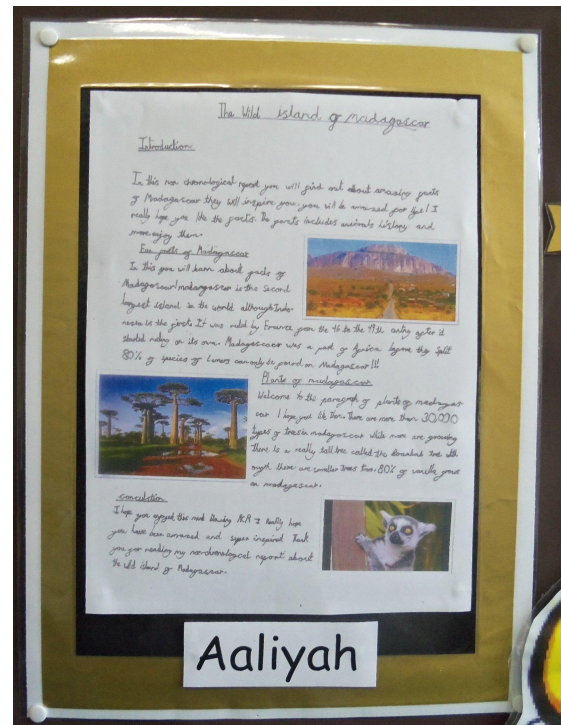 The Wild island of Madagascar
Introduction
In this non chronological report you will find out about amazing facts
of Madagascar they will inspire you, you will be amazed for life! I
really hope you like the facts. The facts includes animals history and
more enjoy them.
Fun facts of Madagascar
In this you will learn about facts of
Madagascar! madagascar is the second
largest island in the world although Indo-
nesia is the first. It was ruled by France from the 16 to the 19th
started ruling on its own. Madagascar was a part of Africa before they split
80% of species of Lemurs can only be found on Madagascar!!!
Plants of madagascar
Welcome to the paragraph of plants of madagas
car I hope you like them. There are more than 30,000
types of trees in madagascar while more are growing
there is a really tall tree called the
there are smaller trees too. 80% of vanilla grows
on madagascar.
I hope you enjoyed this I really hope
you have been amazed and super inspired thank
you for reading my non-chronological report about
the wild island of Madagascar.
Aaliyah